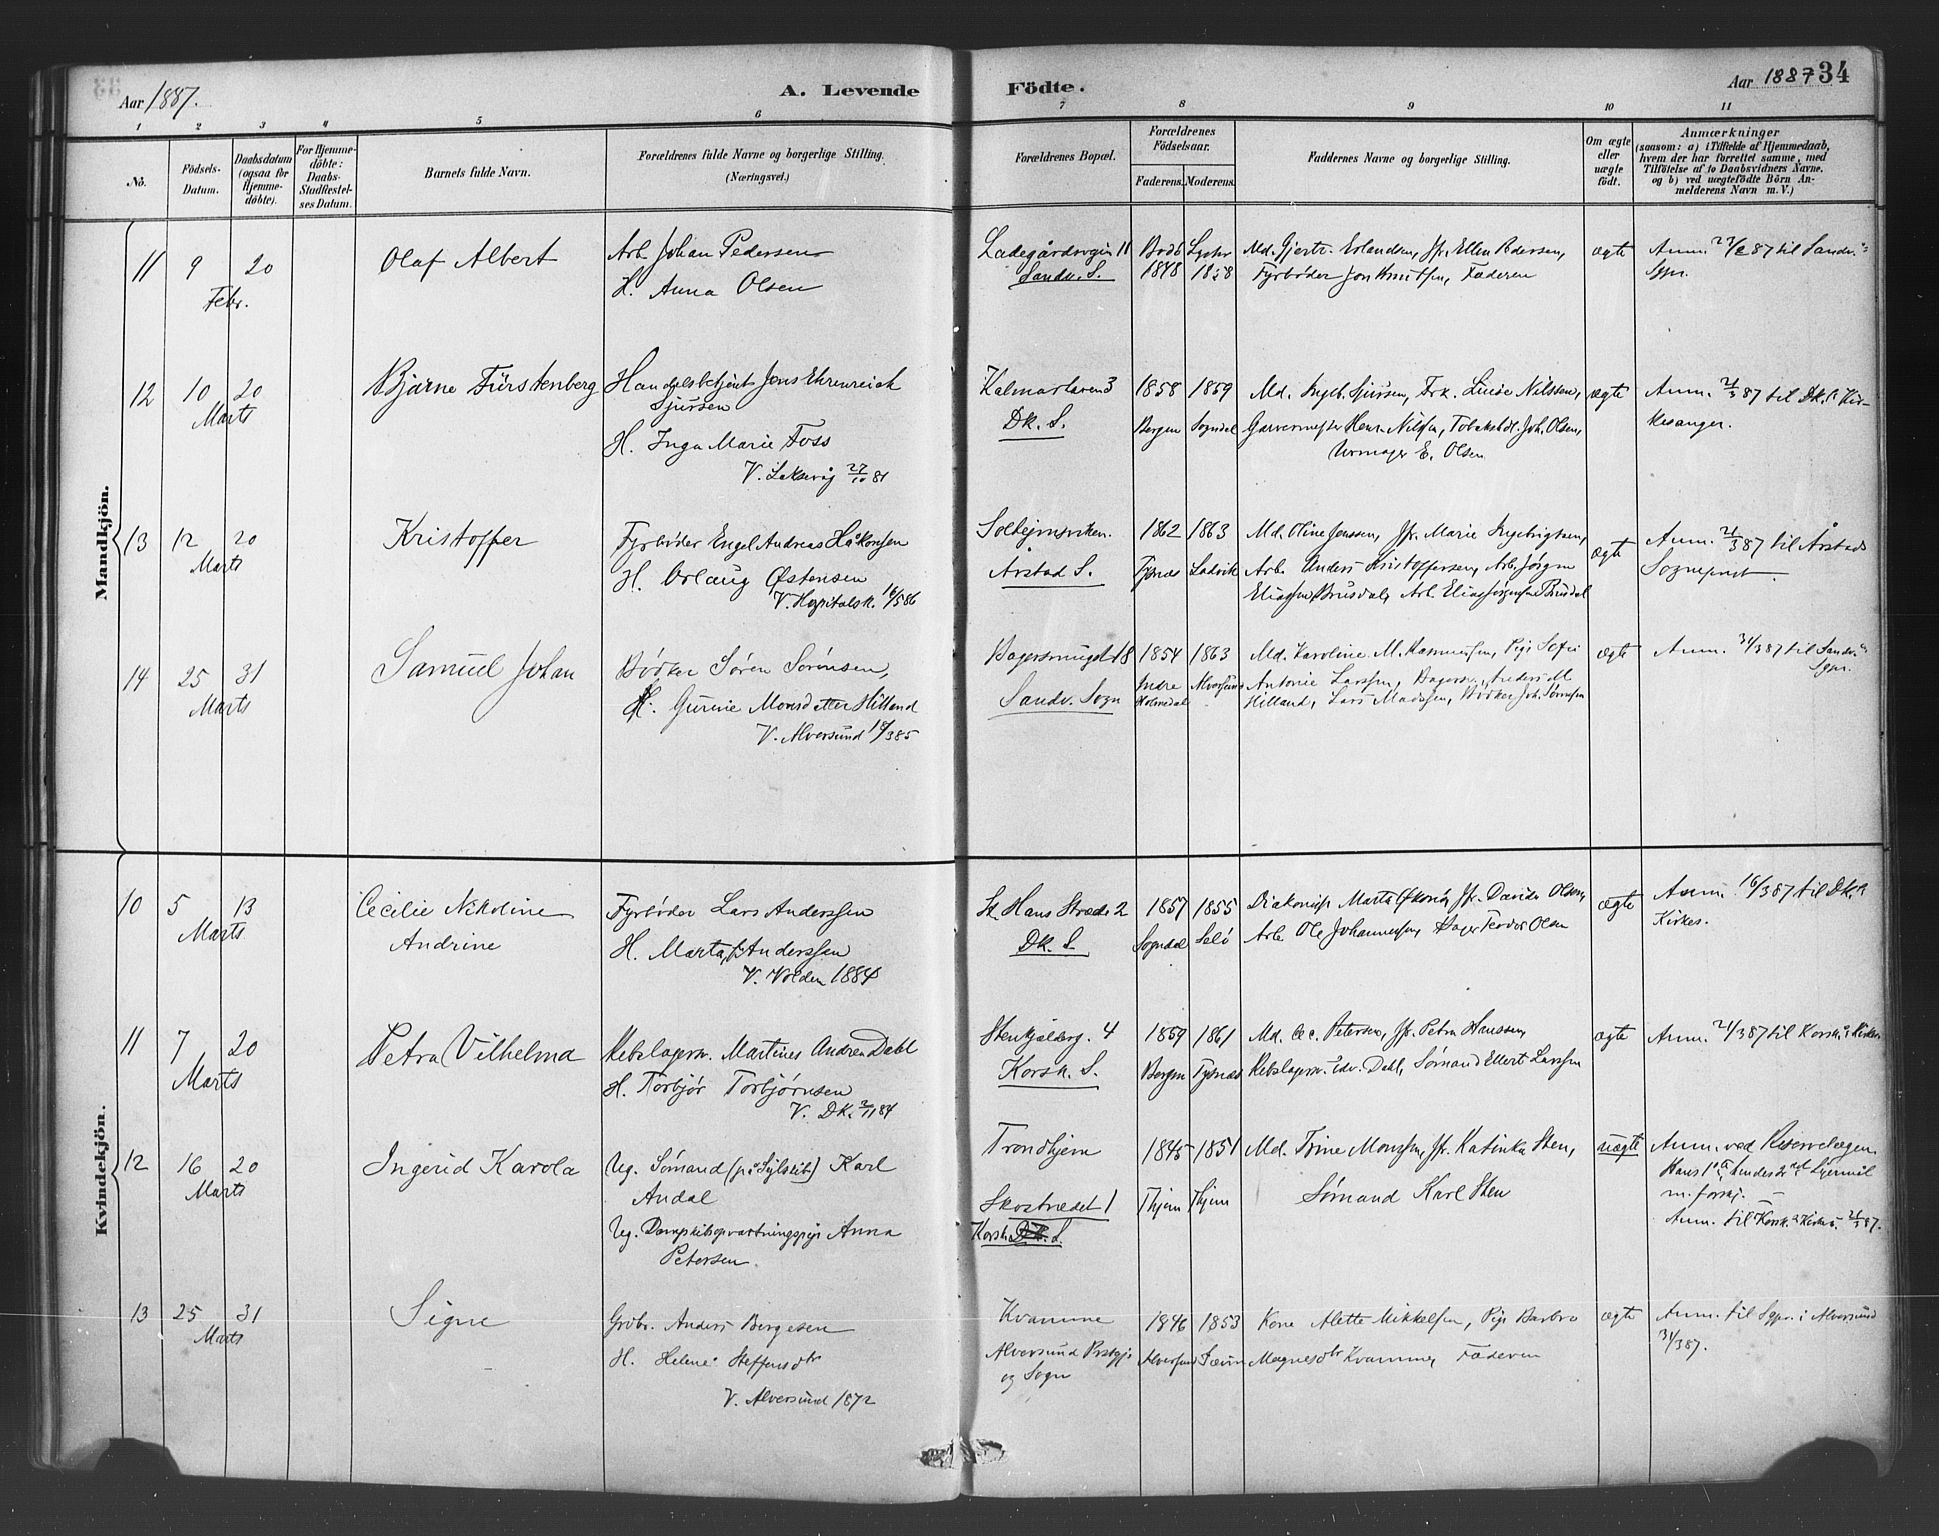 Aar 1887. A. Levende Födte. Aar 1887 34
1 2 3 4 5 6 7 8 9 10 11
No.
Födsels-Datum.
Daabsdatum (ogsaa for Hjemme-döbte).
For Hjemme-döbte: Daabs-Stadfæstel-ses Datum.
Barnets fulde Navn.
Forældrenes fulde Navne og borgerlige Stilling. (Næringsvei.)
Forældrenes Bopæl.
Forældrenes Födselsaar.
Faderens. Moderens.
Faddernes Navne og borgerlige Stilling.
Om ægte eller uægte födt.
Anmærkninger
(saasom: a) i Tilfælde af Hjemmedaab,
hvem der har forrettet samme, med
Tilföielse af to Daabsvidners Navne.
og b) ved uægtefödte Börn An-
melderens Navn m. V.)
Mandkjön.
11 9 Febr. 20
Olaf Albert
Arb. Johan Pedersen
H. Anna Olsen
11
Sandv. S.
Bodö 1848
1858
Md. Gjertr. Erlandsen, Jfr. Ellen Pedersen,
Fyrböder Jon Knutsen, Faderen
ægte
Anm. 87 til Sandv.
Spr.
12 10 20
Marts
Bjarne Fürstenberg
Handelsbetjent Jens Ehrenreich
Sjursen
H. Inga Marie Foss
V. Laksevåg 27/10 81
3
Dk. S.
1858 1859
Bergen Sogndal
Md. Ingeb. Sjursen, Frk. Luise Nilssen,
Garvermester Henr. Nilsen, Joh. Olsen,
Urmager E. Olsen
ægte
Anm. 21/3 87 til Dk. Kir-
kesanger.
13 12 20
Marts
Kristoffer
Fyrböder Engel Andreas Håkonsen
H. Orlaug Östensen
V. Hospitalsk. 16/5 86
Solheimsviken.
Årstad S.
1862 1863
Tysnæs Ladvik
Md. Oline Jenssen, Jfr. Marie Ingebrigtsen,
Arb. Anders Kristoffersen, Arb. Jörgen
Eliassen Brusdal, Arb. Elias Jörgensen Brusdal
ægte
Anm. 21/3 87 til Årstads
Sogneprest.
14 25 31
Marts
Samuel Johan
Bödker Sören Sörensen,
H. Gurine Monsdatter Hilland
V. Alversund 85
18
Sandv. Sogn
1854 1863
Indre Holmedal Alversund
Md. Karoline M. Rasmussen, Pige Sofie
Antonie Larssen, Bagersv. Anders M.
Hilland, Lars Madssen, Bödker Joh. Sörensen
ægte
Anm. 31/3 87 til Sandv.
Spr.
Kvindekjön.
10 5 13
Marts
Cecilie Nikoline
Andrine
Fyrböder Lars Anderssen
H. Marta Anderssen
V. Volden 1884
St. Hans Stræde 2
Dk. S.
1857 1855
Sogndal Selö
Diakonisse Marta Jfr. Davida Olsen,
Arb. Ole Johannessen, Bager Teodor Olsen
ægte
Anm. 16/3 87 til Dk.
Kirkes.
11 7 20
Marts
Petra Vilhelma
Rebslagersv. Martines Andrea Dahl
H. Torbjör Torbjörnsen
V. Dk. 2/11 84
Stenkjelderg. 4
Korsk. S.
1859 1861
Bergen Tysnæs
Md. Cec. Petersen, Jfr. Petra Hanssen,
Rebslagersv. Edv. Dahl, Sömand Ellert Larssen
ægte
Anm. 21/3 87 til Korsk.
12 16 20
Marts
Ingerid Karola
Ug. Sömand (på Sejlskib) Karl
Andal
Ug. Dampskibsopvartningspige Anna
Petersen.
Trondhjem
Skostrædet 1
Korsk. Dk. S.
1845 1851
Thjem Thjem
Md. Trine Monssen, Jfr. Katinka Sten,
Sömand Karl Sten
uægte
Anm. ved Reservelægen
Hans 1ste, hendes 2det Leiermål
m. forskj.
Anm. til Korsk. 21/3 87.
13 25 31
Marts
Signe
Grbr. Anders Börgesen
H. Helene Steffensdtr
V. Alversund 1872
Kvamme
Alversund Prstgj.
og Sogn
1846 1853
Alversund
Kone Alette Mikkelsen, Pige Barbro
Magnesdtr Kvamme, Faderen
ægte
Anm. til Spr. i Alversund
31/3 87.